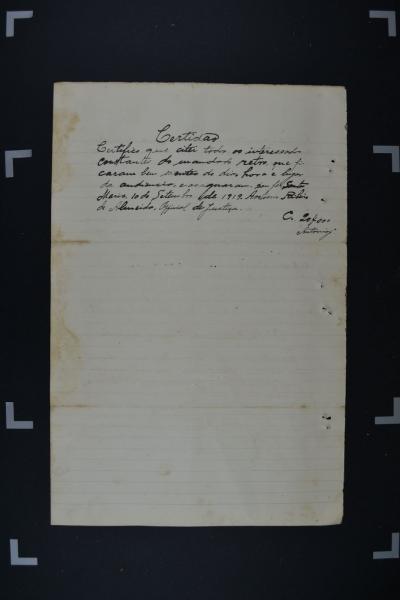 Certidão
Certifico que citei todos os interessados
constantes do mandado retro, que fi-
caram bem scientes do dia, hora e lugar
da audiencia, do que dou fé. Santa
Maria, 10 de Setembro de 1919. Antonio Ribeiro
de Almeida, Official de Justiça.
C. 20$000
Antonio